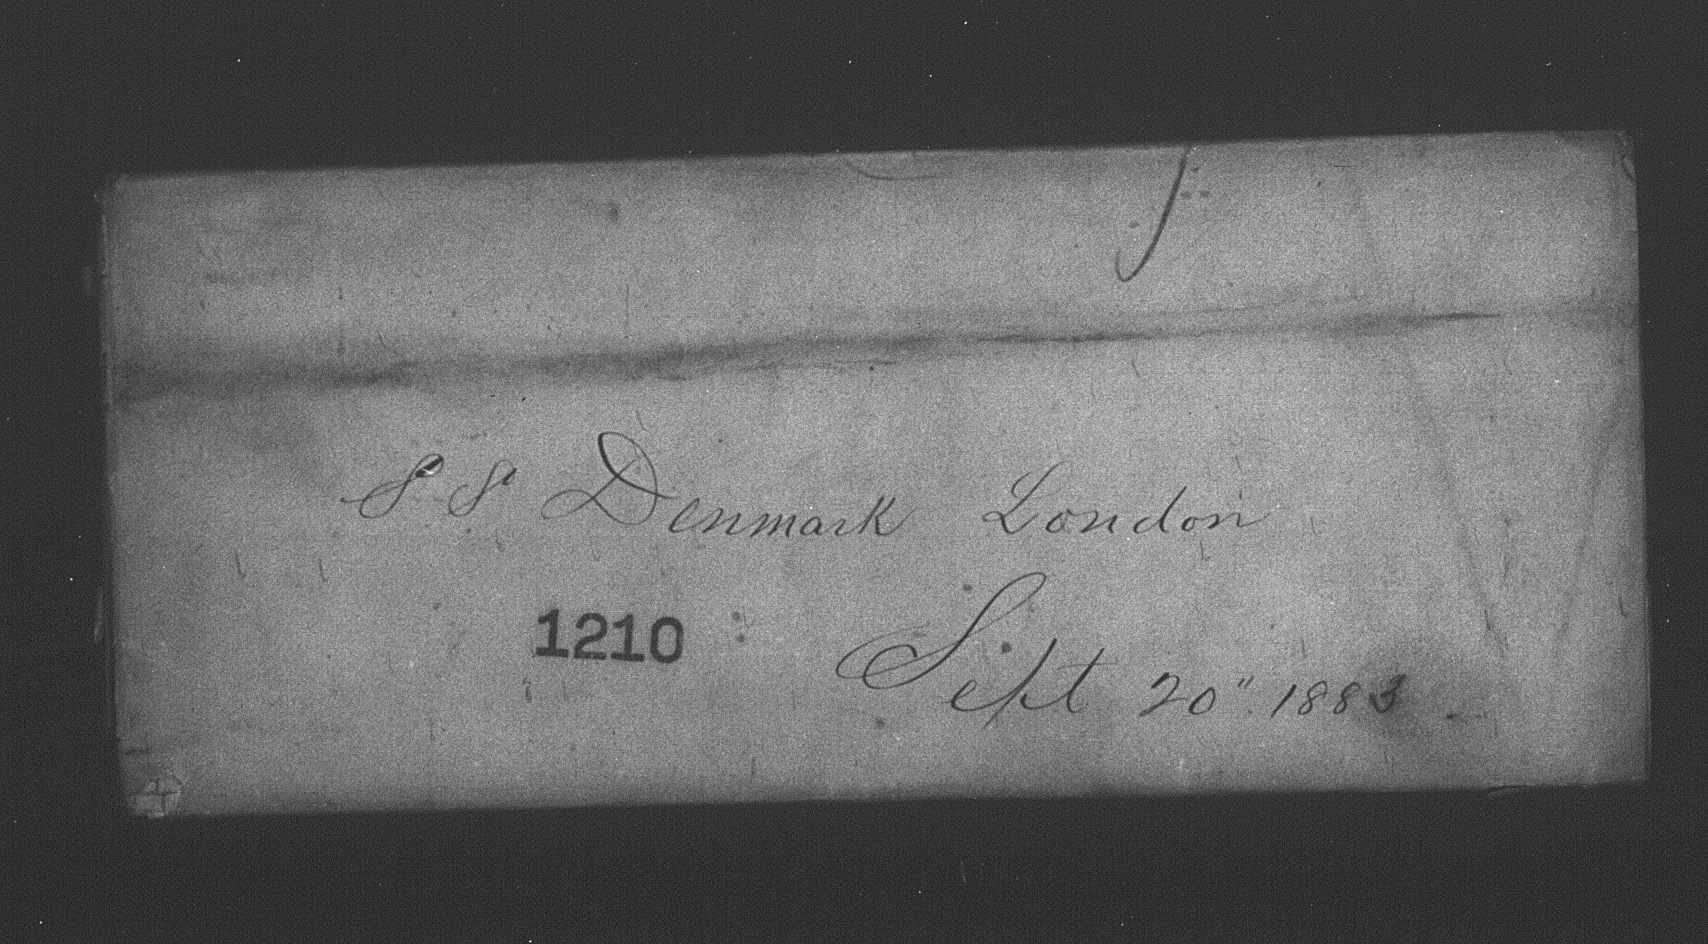 S S Denmark London
1210
Sept 20" 1883